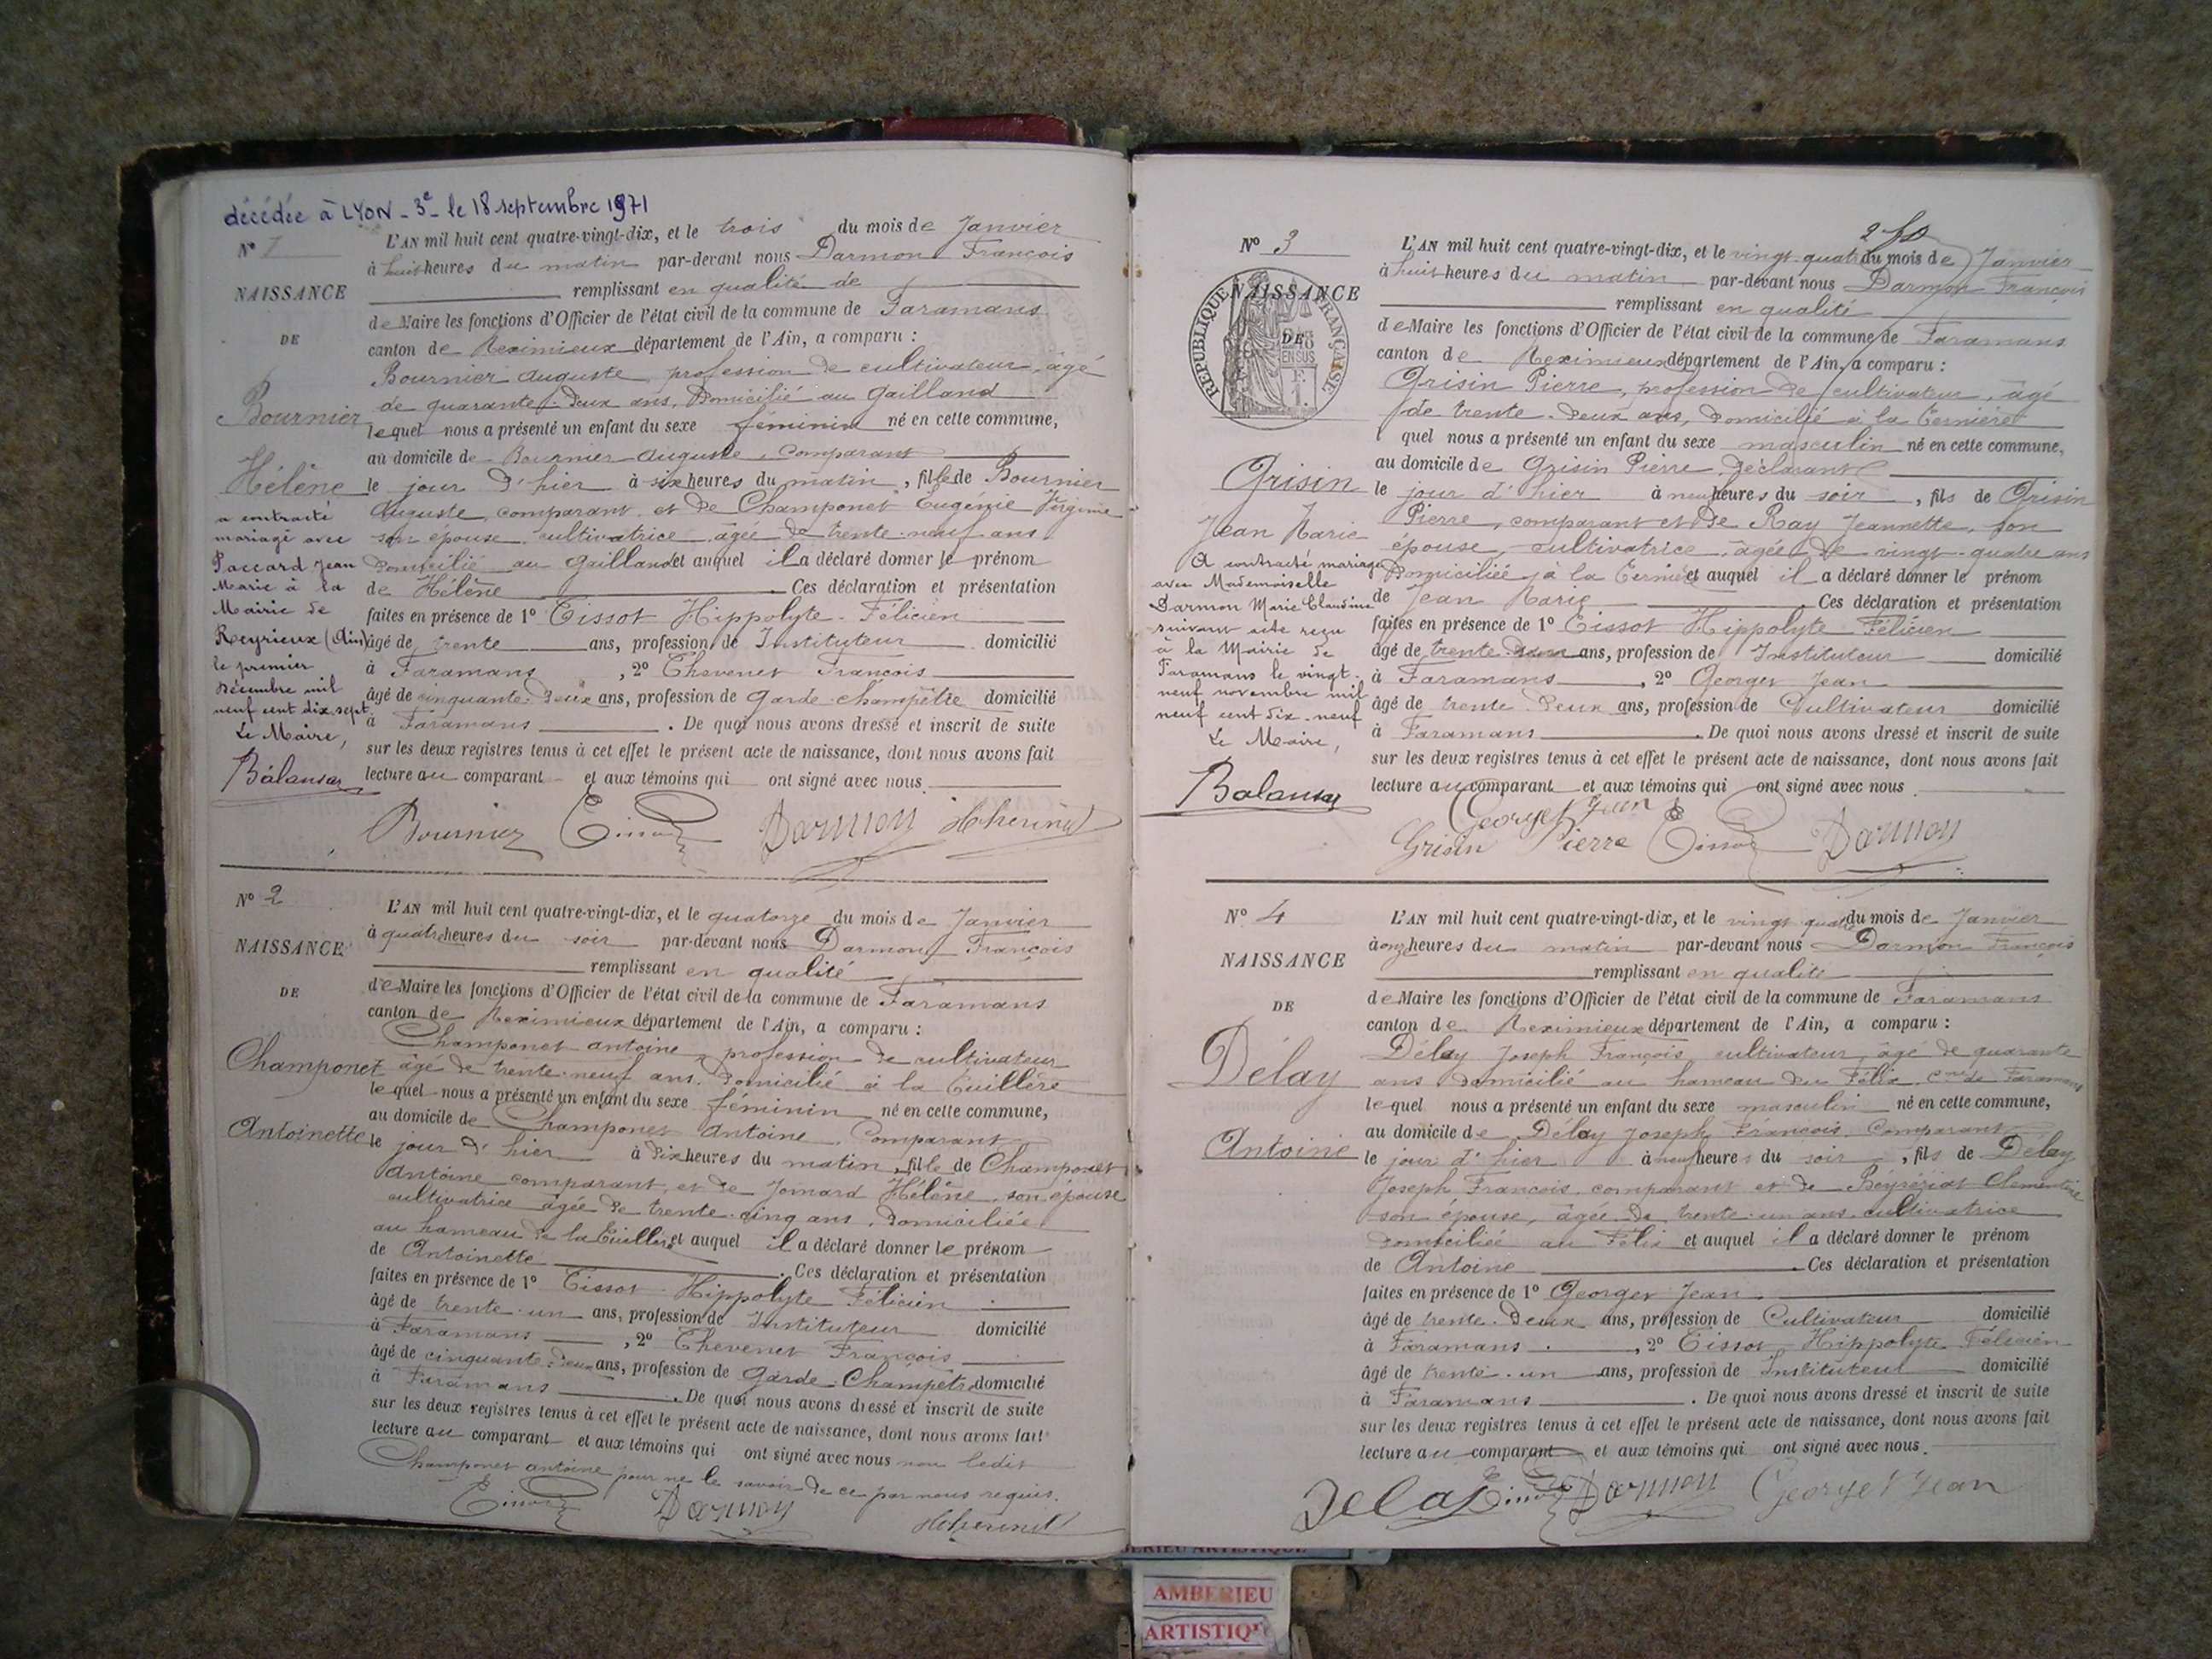 décédée à LYON - 3e - le 18 septembre 1971
N° 1
NAISSANCE
DE
Bournier
Hélène
a contracté
mariage avec
Paccard Jean
Marie à la
Mairie de
Reyrieux (Ain)
le premier
décembre mil
neuf cent dix sept.
Le Maire,
L'AN mil huit cent quatre-vingt-dix, et le trois du mois de Janvier
à huit heures du matin par-devant nous Darmon François
remplissant en qualité de
de Maire les fonctions d'Officier de l'état civil de la commune de Faramans
canton de Meximieux département de l'Ain, a comparu :
Bournier Auguste, profession de cultivateur, âgé
de quarante-deux ans, domicilié au Gailland
lequel nous a présenté un enfant du sexe féminin né en cette commune,
au domicile de Bournier Auguste, comparant
le jour d'hier à six heures du matin, fille de Bournier
Auguste, comparant, et de Champonet Eugénie Virginie
son épouse, cultivatrice, âgée de trente-neuf ans
domicilié au Gailland et auquel il a déclaré donner le prénom
de Hélène Ces déclaration et présentation
faites en présence de 1° Tissot Hippolyte Félicien
âgé de trente ans, profession de Instituteur domicilié
à Faramans, 2° Thevenet François
âgé de cinquante-deux ans, profession de Garde-champêtre domicilié
à Faramans. De quoi nous avons dressé et inscrit de suite
sur les deux registres tenus à cet effet le présent acte de naissance, dont nous avons fait
lecture au comparant et aux témoins qui ont signé avec nous.
Bournier Tissot Darmon
N° 2
NAISSANCE
DE
Champonet
Antoinette
L'AN mil huit cent quatre-vingt-dix, et le quatorze du mois de Janvier
à quatre heures du soir par-devant nous Darmon François
remplissant en qualité
de Maire les fonctions d'Officier de l'état civil de la commune de Faramans
canton de Meximieux département de l'Ain, a comparu :
Champonet Antoine, profession de cultivateur
âgé de trente-neuf ans, domicilié à la Tuillère
lequel nous a présenté un enfant du sexe féminin né en cette commune,
au domicile de Champonet Antoine, Comparant
le jour d'hier à dix heures du matin, fille de Champonet
Antoine comparant, et de Jomard Hélène, son épouse
cultivatrice âgée de trente-cinq ans, domiciliée
au hameau de la Tuillère et auquel il a déclaré donner le prénom
de Antoinette. Ces déclaration et présentation
faites en présence de 1° Tissot Hippolyte Félicien
âgé de trente-un ans, profession de Instituteur domicilié
à Faramans, 2° Thevenet François
âgé de cinquante-deux ans, profession de Garde-Champêtre domicilié
à Faramans. De quoi nous avons dressé et inscrit de suite
sur les deux registres tenus à cet effet le présent acte de naissance, dont nous avons fait
lecture au comparant et aux témoins qui ont signé avec nous non ledit
Champonet Antoine pour ne le savoir de ce par nous requis.
Tissot Darmon
N° 3
NAISSANCE
DE
RÉPUBLIQUE FRANÇAISE
Grisin
Jean Marie
A contracté mariage
avec Mademoiselle
Darmon Marie Claudine
suivant acte reçu
à la Mairie de
Faramans le vingt-
neuf novembre mil
neuf cent dix-neuf
Le Maire,
L'AN mil huit cent quatre-vingt-dix, et le vingt-quatre du mois de Janvier
à huit heures du matin par-devant nous Darmon François
remplissant en qualité
de Maire les fonctions d'Officier de l'état civil de la commune de Faramans
canton de Meximieux département de l'Ain, a comparu :
Grisin Pierre, profession de cultivateur, âgé
de trente-deux ans, domicilié à la
quel nous a présenté un enfant du sexe masculin né en cette commune,
au domicile de Grisin Pierre, déclarant
le jour d'hier à neuf heures du soir, fils de Grisin
Pierre, comparant et de Ray Jeannette, son
épouse, cultivatrice, âgée de vingt-quatre ans
domiciliée à la et auquel il a déclaré donner le prénom
de Jean Marie Ces déclaration et présentation
faites en présence de 1° Tissot Hippolyte Félicien
âgé de trente ans, profession de Instituteur domicilié
à Faramans, 2° Georget Jean
âgé de trente-deux ans, profession de Cultivateur domicilié
à Faramans. De quoi nous avons dressé et inscrit de suite
sur les deux registres tenus à cet effet le présent acte de naissance, dont nous avons fait
lecture au comparant et aux témoins qui ont signé avec nous.
Georget Jean
Grisin Pierre Tissot Darmon
N° 4
NAISSANCE
DE
Délay
Antoine
L'AN mil huit cent quatre-vingt-dix, et le vingt-quatre du mois de Janvier
à onze heures du matin par-devant nous Darmon François
remplissant en qualité
de Maire les fonctions d'Officier de l'état civil de la commune de Faramans
canton de Meximieux département de l'Ain, a comparu :
Délay Joseph François, cultivateur, âgé de quarante
ans domicilié au hameau du Félix, Cne de Faramans
lequel nous a présenté un enfant du sexe masculin né en cette commune,
au domicile de Délay Joseph François, Comparant
le jour d'hier à neuf heures du soir, fils de Délay
Joseph François, comparant et de Clementine
son épouse, âgée de trente-un ans, cultivatrice
domiciliée au Félix et auquel il a déclaré donner le prénom
de Antoine. Ces déclaration et présentation
faites en présence de 1° Georget Jean
âgé de trente-deux ans, profession de Cultivateur domicilié
à Faramans, 2° Tissot Hippolyte Félicien
âgé de trente-un ans, profession de Instituteur domicilié
à Faramans. De quoi nous avons dressé et inscrit de suite
sur les deux registres tenus à cet effet le présent acte de naissance, dont nous avons fait
lecture au comparant et aux témoins qui ont signé avec nous.
Delay Tissot Darmon Georget Jean
AMBERIEU
ARTISTIQ